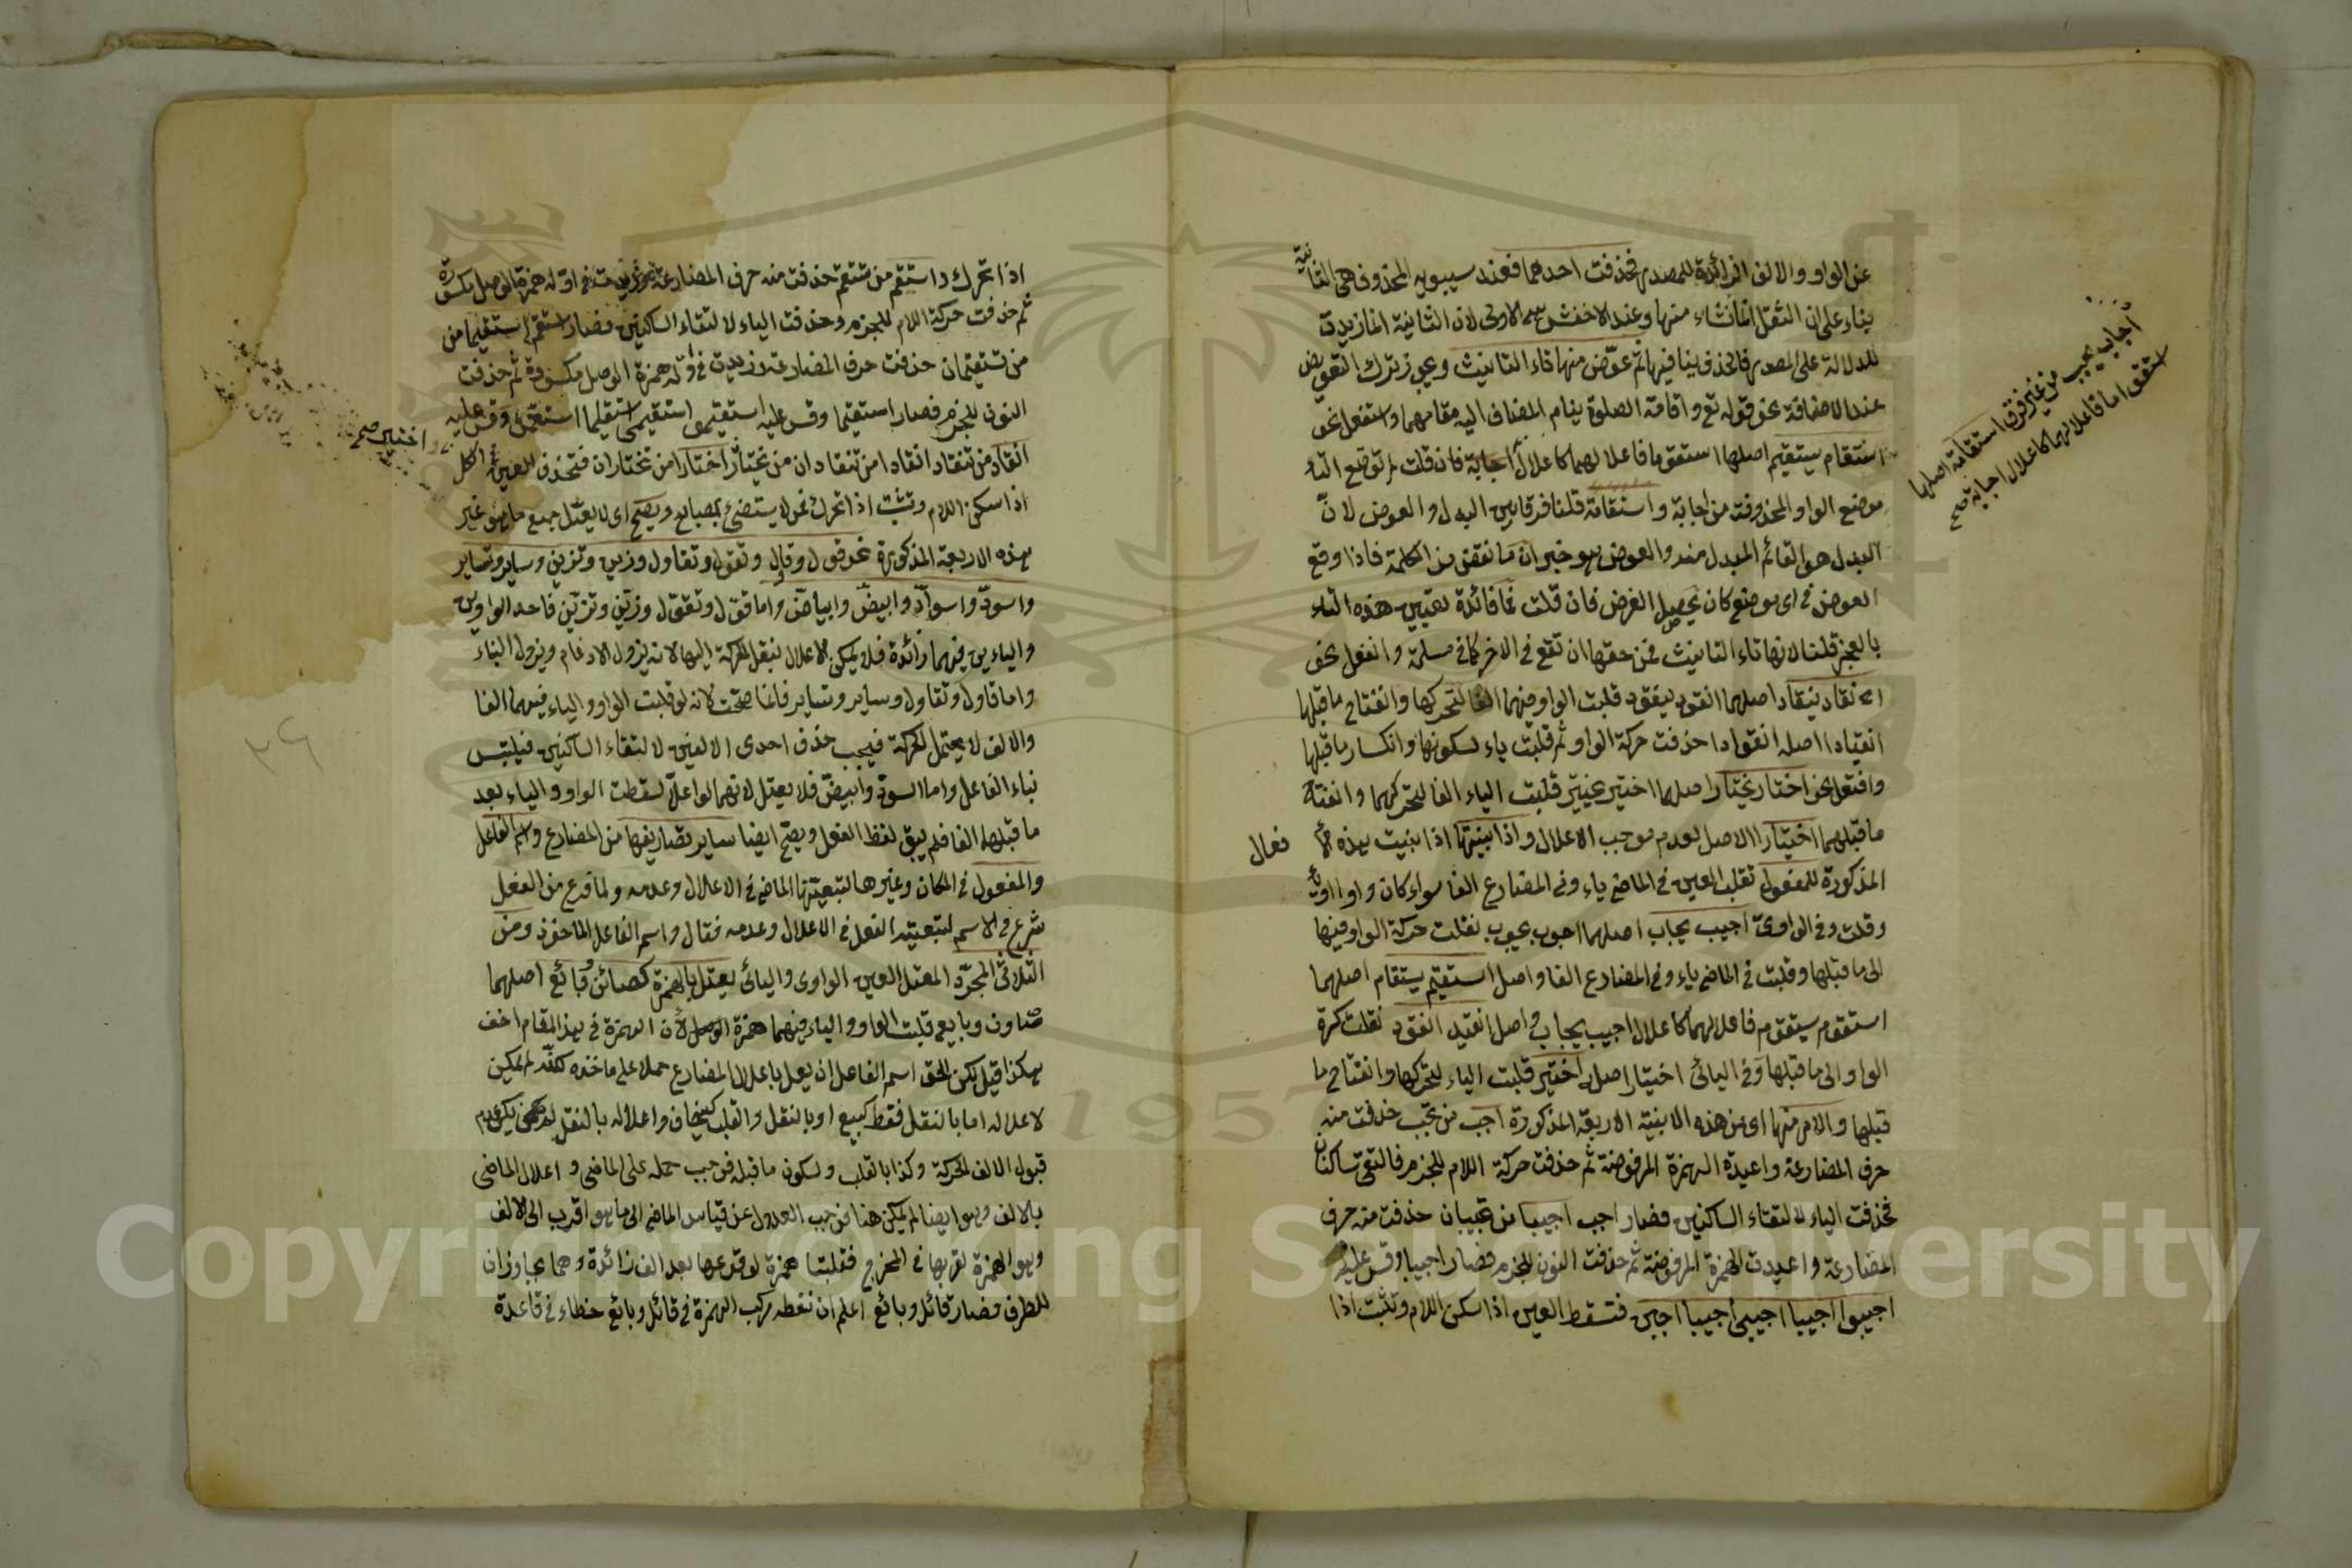 عن الواو والالف الزائدة للمصدر فحذفت احدهما فعند سيبويه المحذوف هي الثانية
بناء على ان الثقل انما نشاء منها وعند الاخفش هي الاولى لان الثانية انما زيدت
للدلالة على المصدر فالحذف ينافيها ثم عوّض منها تاء التانيث ويجوز ترك التعويض
عند الاضافة نحو قوله تع واقامة الصلوة بقيام المضاف اليه مقامهما واستفعل نحو
استقام يستقيم اصلهما استقوم فاعلالهما كاعلال اجابة فان قلت لم توقع التاء
موضع الواو المحذوفة من اجابة واستقامة قلنا فرقا بين البدل والعوض لانّ
البدل هو القائم المبدل منه والعوض هو جبران ما نقص من الكلمة فاذا وقع
العوض في اى موضع كان يحصل الغرض فان قلت فما فائدة تعيين هذه التاء
بالعجز قلنا لانها تاء التانيث فمن حقها ان تقع في الاخر كما في مسلمة وانفعل نحو
انقاد ينقاد اصلهما انقود ينقود قلبت الواو فيهما الفا لتحركها وانفتاح ما قبلها
انقيادا اصله انقوادا حذفت حركة الواو ثم قلبت ياء لسكونها وانكسار ما قبلها
وافتعل نحو اختار يختار اصلهما اختير يختير قلبت الياء الفا لتحركهما وانفتاح
ما قبلهما اختيارا الاصل لعدم موجب الاعلال واذا بنيتها اذا بنيت هذه الا فعال
المذكورة للمفعول تقلب العين في الماضي ياء وفي المضارع الفا سواء كان واوا او ياء
وقلت وفي الواوىّ اجيب يجاب اصلهما اجوب يجوب نقلت حركة الواو فيها
الى ما قبلها وقلبت في الماضي ياء وفي المضارع الفا واصل استقيم يستقام اصلهما
استقوم يستقوم فاعلالهما كاعلال اجيب يجاب واصل انقيد انقود نقلت كسرة
الواو الى ما قبلها وفي اليائى اختيار اصله اختير قلبت الياء لتحركها وانفتاح ما
قبلها والامر منها اى من هذه الابنية الاربعة المذكورة اجب من تجيب حذفت منه
حرف المضارعة واعيدة الهمزة المرفوضة ثم حذفت حركة اللام للجزم فالتقى ساكنان
فحذفت الياء لالتقاء الساكنين فصار اجب اجيبا من تجيبان حذفت منه حرف
المضارعة واعيدت الهمزة المرفوضة ثم حذفت النون للجزم فصار اجيبا وقس عليه
اجيبوا اجيبا اجيبى اجيبا اجبن فتسقط العين اذا سكن اللام وتثبت اذا
اجاب يجيب من غير فرق استقامة اصلها
استقوا اما فاعلالهما كاعلال اجابة صح
اذا تحرك واستقم من تستقم حذفت منه حرف المضارعة وزيدت في اوّله همزة الوصل مكسورة
ثم حذفت حركة اللام للجزم وحذفت الياء لالتقاء الساكنين فصار استقم استقيما من
من تستقيمان حذفت حرف المضارعة وزيدت في اوّله همزة الوصل مكسورة ثم حذفت
النون للجزم فصار استقيما وقس عليه استقيموا استقيمى استقيما استقمن وقس عليه
انقاد من تنقاد انقادا من تنقادان من تختار اختارا من تختاران فتحذف العين في الكل
اذا سكن اللام وتثبت اذا تحرك نحو لا يستضئ بمصباح ويصح اى لا يعتل جميع ما هو غير
هذه الاربعة المذكورة نحو قول وقاول وتقول وتقاول وزين وتزين وساير وتساير
واسودّ واسوادّ وابيضّ وابياضّ واما قوّل وتقوّل وزيّن وتزيّن فاحد الواوين
والياءين فيهما زائدة فلا يمكن الاعلال بنقل الحركة اليها لانه يزول الادغام ويزول البناء
واما قاول وتقاول وساير وتساير فانما صحت لانه لو قلبت الواو والياء فيهما الفا
والالف لا يحتمل الحركة فيجب حذف احدى الالفين لالتقاء الساكنين فيلتبس
بناء الفاعل واما اسودّ وابيضّ فلا يعتل لانهما لو اعلاّ لسقطت الواو والياء بعد
ما قبلها الفا فلم يبق لفظ الفعل ويصحّ ايضا ساير تصاريفها من المضارع واسم الفاعل
والمفعول في المكان وغيرها لتبعيتها الماضي في الاعلال وعدمه ولما فرغ من الفعل
شرع في الاسم لتبعيته الفعل في الاعلال وعدمه فقال واسم الفاعل الماخوذ ومن
الثلاثىّ المجرّد المعتل العين الواوى واليائى يعتل بالهمزة كصائن وبائع اصلهما
صاون وبايع قلبت الواو والياء فيهما همزة لان الهمزة في هذا المقام اخف
هكذا قيل لكن الحق اسم الفاعل ان يعل باعلال المضارع حملا على ماخذه لكنه لم يمكن
لاعلاله اما بالنقل فقط كيبيع او بالنقل والقلب كيخاف واعلاله بالنقل لم يمكن لعدم
قبول الالف الحركة وكذا بالقلب ولسكون ما قبله فوجب حمله على الماضي واعلال الماضي
بالالف وهو ايضا لم يمكن هنا فوجب العدول عن قياس الماضي الى ما هو اقرب الى الالف
وهو الهمزة لقربها في المخرج فقلبتا همزة لوقوعها بعد الف زائدة وهما مجاوزان
للطرف فصار قائل وبائع اعلم ان نقطه مركب الهمزة في قائل وبائع خطاء في قاعدة
واختيارا صح
٢٦
Copyright © King Saud University
1957